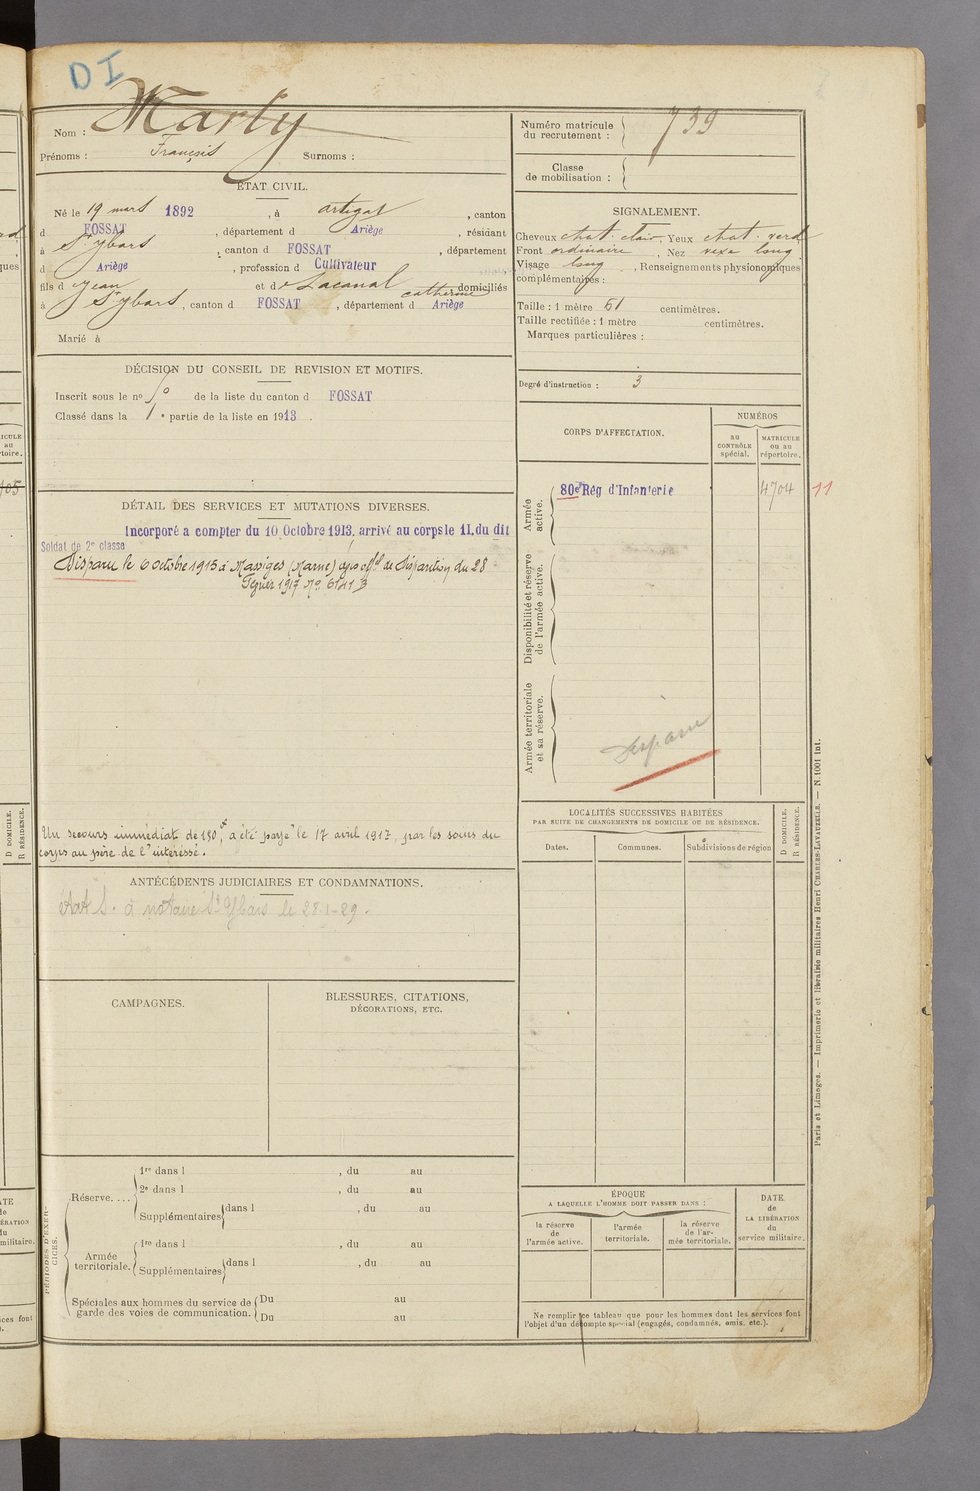 DI
Nom : Marty
Prénoms : François Surnoms :
Numéro matricule du recrutement : 739
Classe de mobilisation :
ÉTAT CIVIL.
Né le 19 mars 1892, à Artigat, canton
d FOSSAT, département d Ariège, résidant
à St Ybars, canton d FOSSAT, département
d Ariège, profession d Cultivateur
fils d Jean et d Lacanal Catherine domiciliés
à St Ybars, canton d FOSSAT, département d Ariège
Marié à
SIGNALEMENT.
Cheveux chat. clair, Yeux chat. verd
Front ordinaire, Nez vexe long
Visage long, Renseignements physionomiques
complémentaires :
Taille : 1 mètre 61 centimètres.
Taille rectifiée : 1 mètre centimètres.
Marques particulières :
Degré d'instruction : 3
DÉCISION DU CONSEIL DE REVISION ET MOTIFS.
Inscrit sous le no de la liste du canton d FOSSAT
Classé dans la 1e partie de la liste en 1913.
CORPS D'AFFECTATION.
NUMÉROS
au CONTRÔLE spécial.
MATRICULE ou au répertoire.
Armée active.
80e Rég d'Infanterie 4704 11
Disponibilité et réserve de l'armée active.
Armée territoriale et sa réserve.
Disparu
DÉTAIL DES SERVICES ET MUTATIONS DIVERSES.
Incorporé a compter du 10 Octobre 1913, arrivé au corps le 11, du dit
Soldat de 2e classe
Disparu le 6 octobre 1915 à Massiges (Marne) avis off.el de disparition du 28
Février 1917 No 6141 B
Un secours immédiat de 150f, a été payé le 17 avril 1917, par les soins du
corps au père de l'intéressé.
ANTÉCÉDENTS JUDICIAIRES ET CONDAMNATIONS.
état S. à notaire St Ybars le 28-1-29.
CAMPAGNES.
BLESSURES, CITATIONS,
DÉCORATIONS, ETC.
LOCALITÉS SUCCESSIVES HABITÉES
PAR SUITE DE CHANGEMENTS DE DOMICILE OU DE RÉSIDENCE.
Dates. Communes. Subdivisions de région
D DOMICILE.
R RÉSIDENCE.
PÉRIODES D'EXERCICES.
Réserve....
1re dans l , du au
2e dans l , du au
Supplémentaires dans l , du au
Armée territoriale.
1re dans l , du au
Supplémentaires dans l , du au
Spéciales aux hommes du service de garde des voies de communication.
Du au
Du au
ÉPOQUE
A LAQUELLE L'HOMME DOIT PASSER DANS :
la réserve de l'armée active.
l'armée territoriale.
la réserve de l'armée territoriale.
DATE de LA LIBÉRATION du service militaire.
Ne remplir ce tableau que pour les hommes dont les services font
l'objet d'un décompte spécial (engagés, condamnés, omis, etc.).
Paris et Limoges. — Imprimerie et librairie militaires Henri CHARLES-LAVAUZELLE. — N. 1001 int.